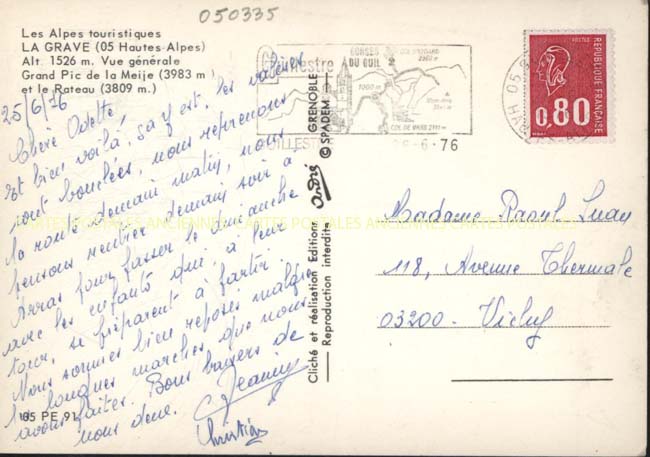 050335
Les Alpes touristiques
LA GRAVE (05 Hautes Alpes)
Alt 1526 m. Vue générale
Grand Pic de la Meije (3983 m
et le Rateau (3809 m.)
25/6/76
Chère Odette,
Et bien voilà, ça y est, les valises
sont bouclées, nous reprenons
la route demain matin, nous
pensons rentrer demain soir à
Arras pour passer le dimanche
avec les enfants qui, à leur
tour, se préparent à partir.
Nous sommes bien reposés malgré
les longues marches que nous
avons faites. Bons baisers de
nous deux.
Jeanine
Christian
05 PE 91
Cliché et réalisation Editions André
Reproduction interdite
© SPADEM
GRENOBLE
Guillestre
GORGES
DU GUIL
COL D'IZOARD
2360 m
1000 m
COL DE VARS 2111 m
GUILLESTRE
-6-76
POSTES
0,80
REPUBLIQUE FRANÇAISE
Madame Raoul Luan
118, Avenue Thermale
03200 - Vichy
CARTES POSTALES ANCIENNES / CARTES POSTALES ANCIENNES / CARTES POSTALES